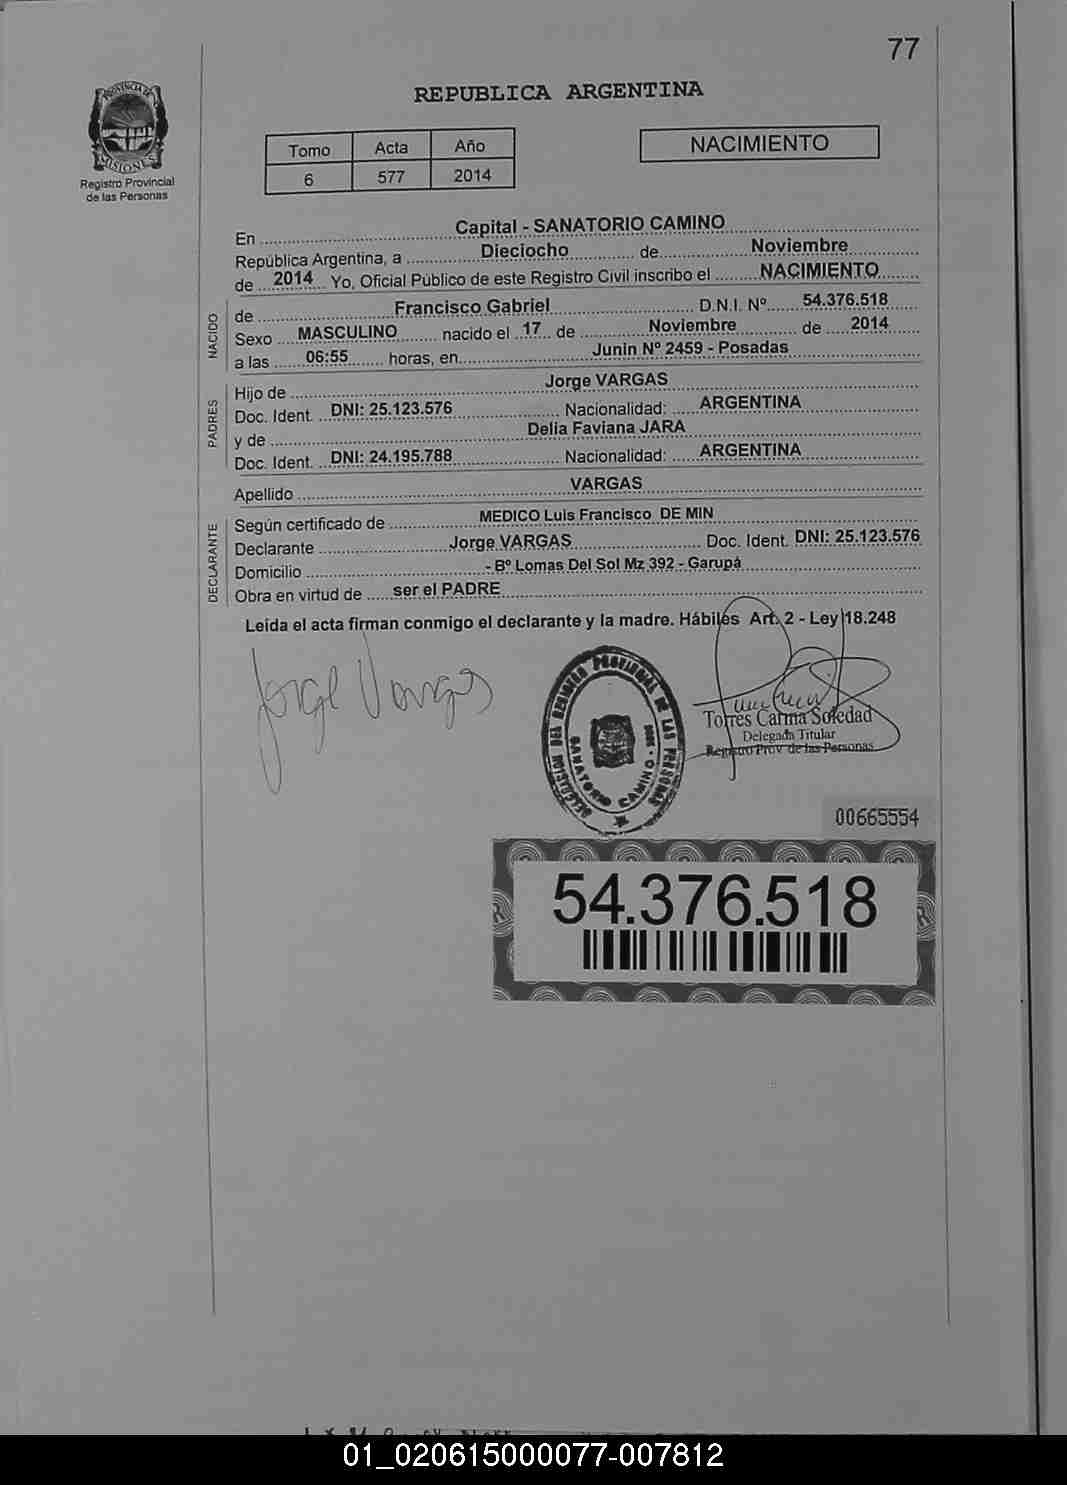 77
PROVINCIA DE
MISIONES
Registro Provincial
de las Personas
REPUBLICA ARGENTINA
Tomo Acta Año
6 577 2014
NACIMIENTO
En Capital - SANATORIO CAMINO
República Argentina, a Dieciocho de Noviembre
de 2014 Yo, Oficial Público de este Registro Civil inscribo el NACIMIENTO
NACIDO
de Francisco Gabriel D.N.I. Nº 54.376.518
Sexo MASCULINO nacido el 17 de Noviembre de 2014
a las 06:55 horas, en Junin Nº 2459 - Posadas
PADRES
Hijo de Jorge VARGAS
Doc. Ident. DNI: 25.123.576 Nacionalidad: ARGENTINA
y de Delia Faviana JARA
Doc. Ident. DNI: 24.195.788 Nacionalidad: ARGENTINA
Apellido VARGAS
DECLARANTE
Según certificado de MEDICO Luis Francisco DE MIN
Declarante Jorge VARGAS Doc. Ident. DNI: 25.123.576
Domicilio - Bº Lomas Del Sol Mz 392 - Garupá
Obra en virtud de ser el PADRE
Leida el acta firman conmigo el declarante y la madre. Hábiles Art. 2 - Ley 18.248
Jorge Vargas
DELEGACION DEL REGISTRO PROVINCIAL DE LAS PERSONAS
SANATORIO CAMINO
Torres Carina Soledad
Delegada Titular
Registro Prov de las Personas
00665554
54.376.518
01_020615000077-007812